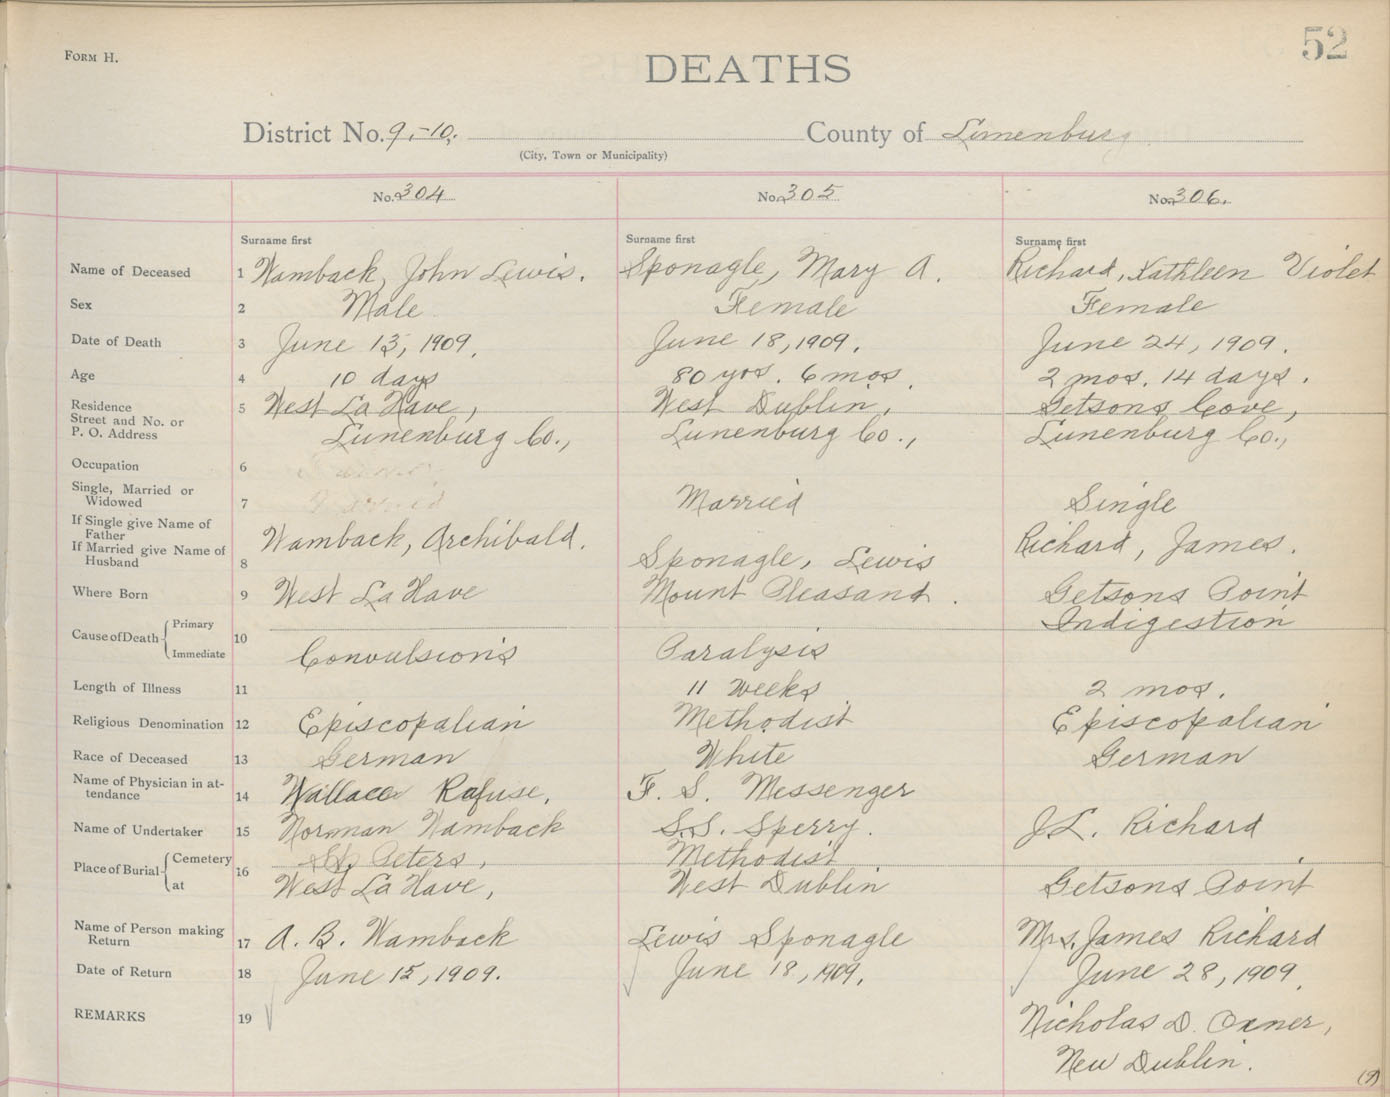 52
FORM H.
DEATHS
District No. 9,-10, County of Lunenburg
(City, Town or Municipality)
No. 304 No. 305 No. 306.
Surname first Surname first Surname first
Name of Deceased 1 Wamback, John Lewis. Sponagle, Mary A. Richard, Kathleen Violet
Sex 2 Male Female Female
Date of Death 3 June 13, 1909. June 18, 1909. June 24, 1909.
Age 4 10 days 80 yrs. 6 mos. 2 mos. 14 days.
Residence 5 West La Have, West Dublin, Getsons Cove,
Street and No. or
P. O. Address Lunenburg Co., Lunenburg Co., Lunenburg Co.,
Occupation 6
Single, Married or
Widowed 7 Married Single
If Single give Name of
Father Wamback, Archibald. Richard, James.
If Married give Name of
Husband 8 Sponagle, Lewis
Where Born 9 West La Have Mount Pleasant. Getsons Point
Cause of Death Primary 10 Indigestion
Immediate Convulsions Paralysis
Length of Illness 11 11 weeks 2 mos.
Religious Denomination 12 Episcopalian Methodist Episcopalian
Race of Deceased 13 German White German
Name of Physician in at-
tendance 14 Wallace Rafuse, F. S. Messenger
Name of Undertaker 15 Norman Wamback S.S. Sperry. J.L. Richard
Place of Burial Cemetery 16 St. Peters, Methodist
at West La Have, West Dublin Getsons Point
Name of Person making
Return 17 A. B. Wamback Lewis Sponagle Mrs. James Richard
Date of Return 18 June 15, 1909. June 18, 1909. June 28, 1909.
REMARKS 19 Nicholas D. Oxner,
New Dublin.
(9)